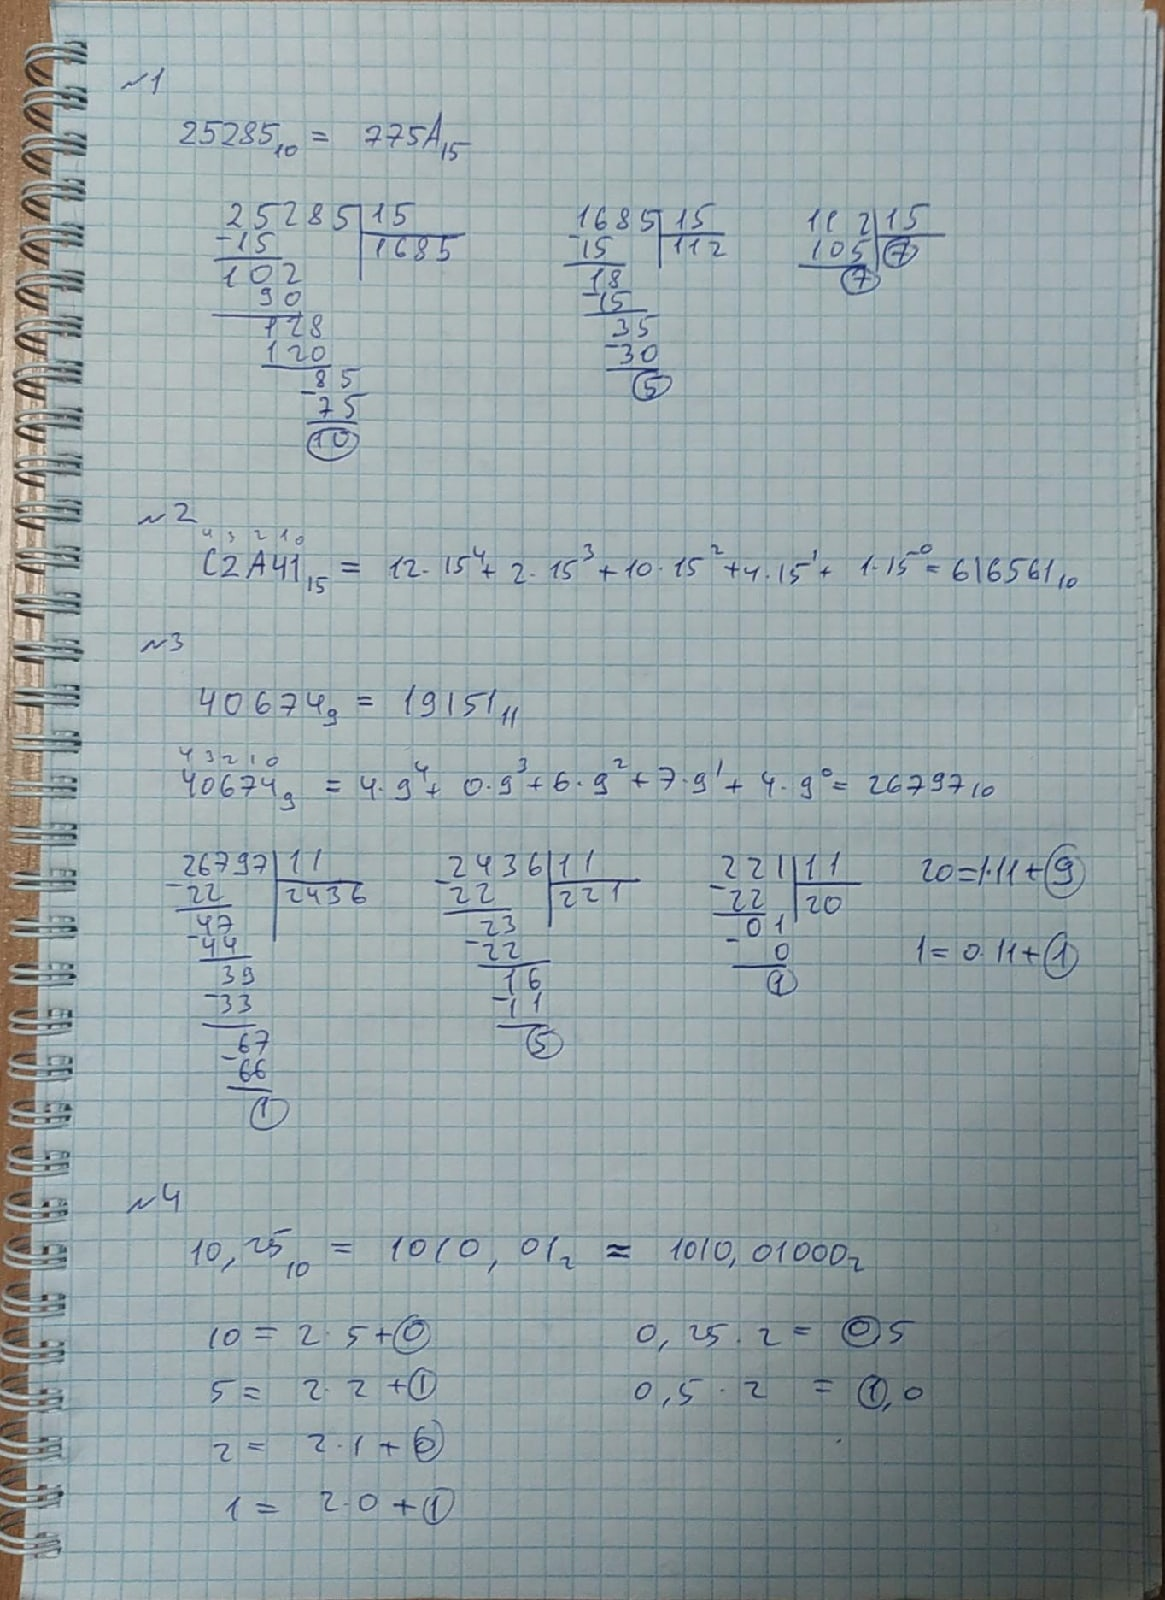 №1
25285₁₀ = 775A₁₅
25285 | 15
-15 | 1685
102
90
128
120
-85
75
10
1685 | 15
-15 | 112
18
-15
35
-30
5
112 | 15
105 | 7
7
№2
4 3 2 1 0
C2A41₁₅ = 12·15⁴ + 2·15³ + 10·15² + 4·15¹ + 1·15⁰ = 616561₁₀
№3
40674₉ = 19151₁₁
4 3 2 1 0
40674₉ = 4·9⁴ + 0·9³ + 6·9² + 7·9¹ + 4·9⁰ = 26797₁₀
26797 | 11
-22 | 2436
47
-44
39
-33
67
-66
1
2436 | 11
-22 | 221
23
-22
16
-11
5
221 | 11
-22 | 20
01
-0
1
20=1·11+9
1=0·11+1
№4
10,25₁₀ = 1010,01₂ ≈ 1010,01000₂
10 = 2·5+0
5 = 2·2+1
2 = 2·1+0
1 = 2·0+1
0,25·2 = 0,5
0,5·2 = 1,0